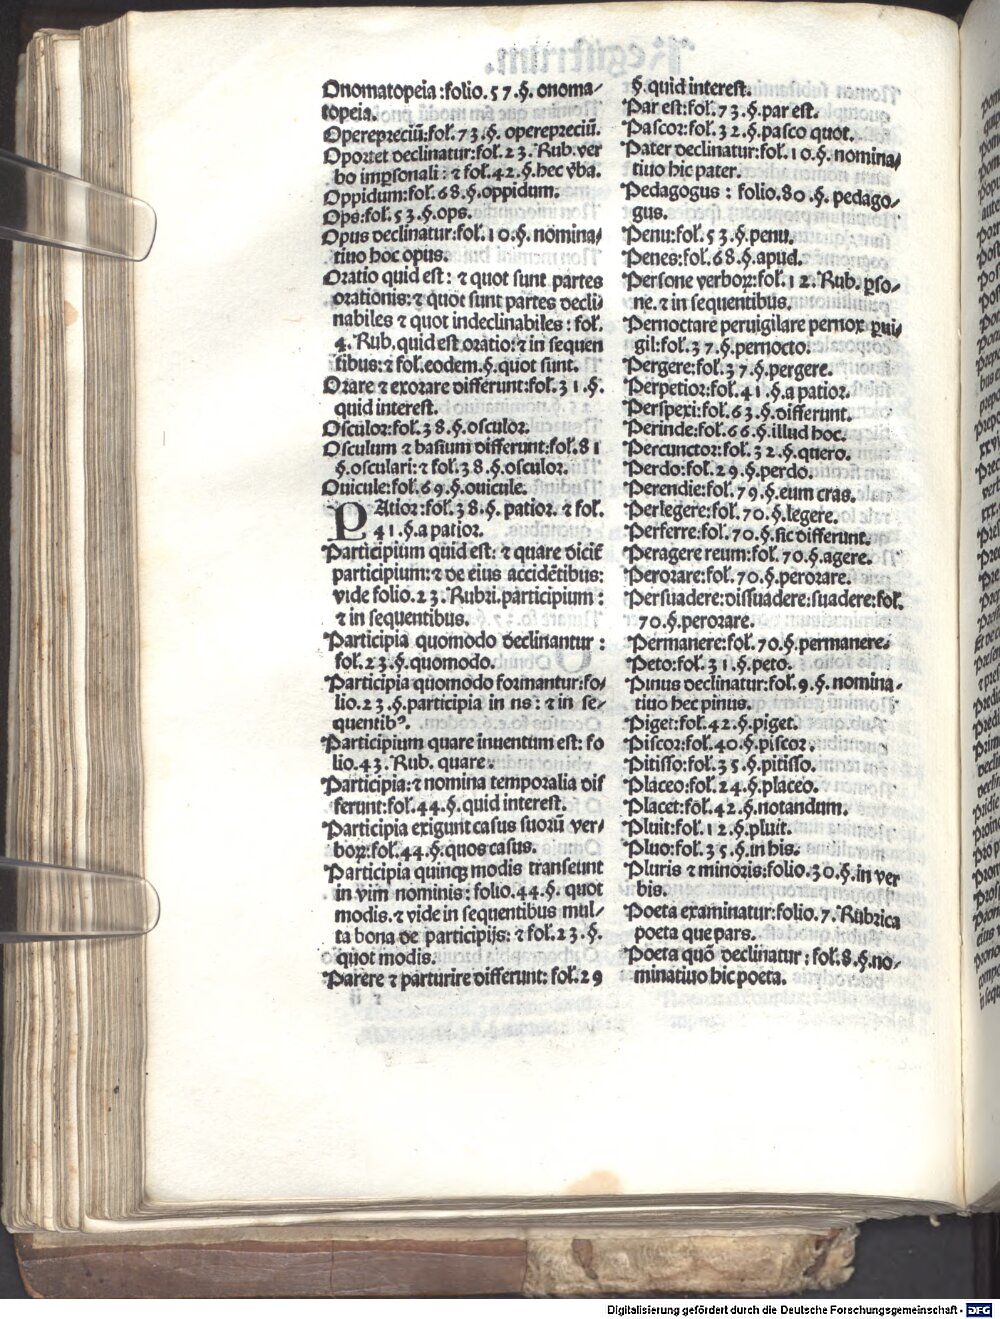 Onomatopeia :folio.57.§. onoma/
topeia.
Operepreciū:fol.73.§. operepreciū.
Oportet declinatur:fol.23.Rub.ver
bo imꝑsonali: ⁊ fol.42.§.hec v̄ba.
Oppidum:fol.68.§.oppidum.
Ops:fol.53.§.ops.
Opus declinatur:fol.10.§. nomina/
tiuo hoc opus.
Oratio quid est: ⁊ quot sunt partes
orationis:⁊ quot sunt partes decli/
nabiles ⁊ quot indeclinabiles : fol.
4.Rub.quid est oratio:⁊ in sequen
tibus:⁊ fol.eodem.§.quot sunt.
Orare ⁊ exorare differunt:fol.31.§.
quid interest.
Osculor:fol.38.§.osculor.
Osculum ⁊ basium differunt:fol.81
§.osculari:⁊ fol.38.§.osculor.
Ouicule:fol.69.§.ouicule.
PAtior:fol.38.§. patior. ⁊ fol.
41.§.a patior.
Participium quid est: ⁊ quare dicit̄
participium:⁊ de eius accidētibus:
vide folio.23.Rubri.participium :
⁊ in sequentibus.
Participia quomodo declinantur :
fol.23.§.quomodo.
Participia quomodo formantur:fo/
lio.23.§.participia in ns: ⁊ in se/
quentibꝰ.
Participium quare inuentum est: fo
lio.43.Rub. quare.
Participia:⁊ nomina temporalia dif
ferunt:fol.44.§.quid interest.
Participia exigunt casus suorū ver/
boꝝ:fol.44.§.quos casus.
Participia quinqꝫ modis transeunt
in vim nominis: folio.44.§. quot
modis.⁊ vide in sequentibus mul/
ta bona de participijs: ⁊ fol.23.§.
quot modis.
Parere ⁊ parturire differunt: fol.29
§.quid interest.
Par est:fol.73.§.par est.
Pascor:fol.32.§.pasco quot.
Pater declinatur:fol.10.§. nomina/
tiuo hic pater.
Pedagogus : folio.80.§. pedago/
gus.
Penu:fol.53.§.penu.
Penes:fol.68.§.apud.
Persone verboꝝ:fol.12.Rub. ꝑso/
ne.⁊ in sequentibus.
Pernoctare peruigilare pernox ꝑui/
gil:fol.37.§.pernocto.
Pergere:fol.37.§.pergere.
Perpetior:fol.41.§.a patior.
Perspexi:fol.63.§.differunt.
Perinde:fol.66.§.illud hoc.
Percunctor:fol.32.§.quero.
Perdo:fol.29.§.perdo.
Perendie:fol.79.§.eum cras.
Perlegere:fol.70.§.legere.
Perferre:fol.70.§.sic differunt.
Peragere reum:fol.70.§.agere.
Perorare:fol.70.§.perorare.
Persuadere:dissuadere:suadere:fol.
70.§.perorare.
Permanere:fol.70.§.permanere.
Peto:fol.31.§.peto.
Pinus declinatur:fol.9.§. nomina/
tiuo hec pinus.
Piget:fol.42.§.piget.
Piscor:fol.40.§.piscor.
Pitisso:fol.35.§.pitisso.
Placeo:fol.24.§.placeo.
Placet:fol.42.§.notandum.
Pluit:fol.12.§.pluit.
Pluo:fol.35.§.in bis.
Pluris ⁊ minoris:folio.30.§.in ver
bis.
Poeta examinatur:folio.7.Rubrica
poeta que pars.
Poeta quō declinatur : fol.8.§.no/
minatiuo hic poeta.
Digitalisierung gefördert durch die Deutsche Forschungsgemeinschaft - DFG